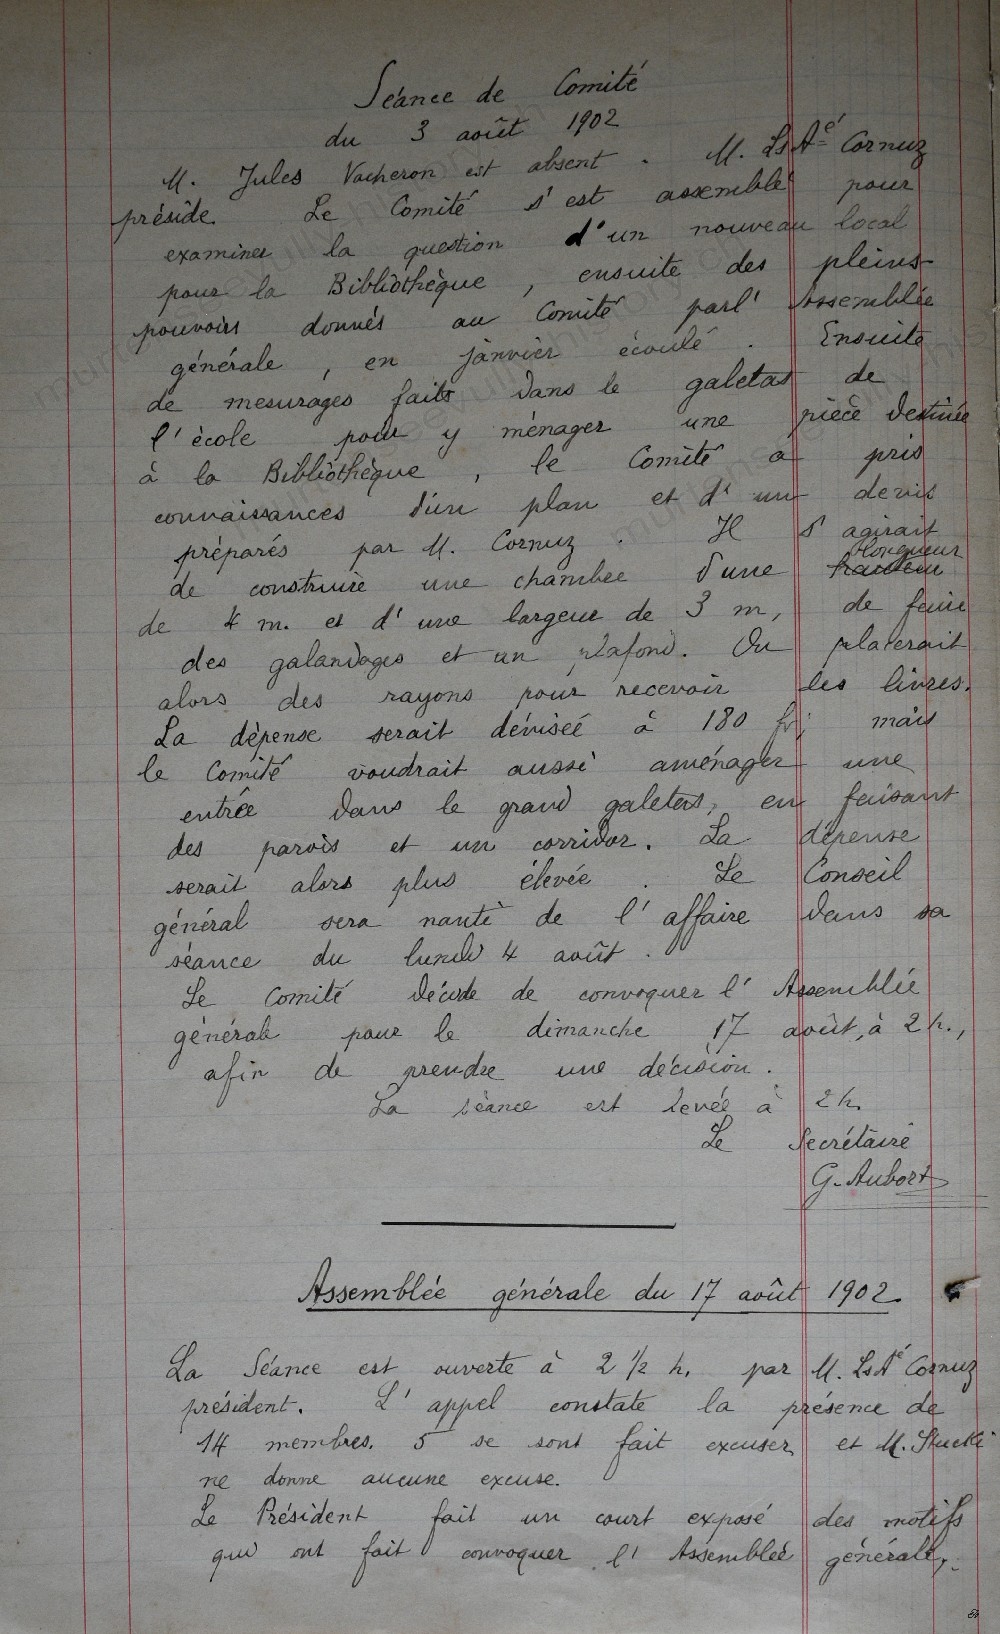 Séance de Comité
du 3 août 1902
M. Jules Vacheron est absent. M. Ls Aé Cornuz
préside. Le Comité s'est assemblé pour
examiner la question d'un nouveau local
pour la Bibliothèque, ensuite des pleins
pouvoirs donnés au Comité par l'Assemblée
générale, en janvier écoulé. Ensuite
de mesurages faits dans le galetas de
l'école pour y ménager une pièce destinée
à la Bibliothèque, le Comité a pris
connaissances d'un plan et d'un devis
préparés par M. Cornuz. Il s'agirait
longueur
de construire une chambre d'une hauteur
de 4 m. et d'une largeur de 3 m, de faire
des galandages et un plafond. On placerait
alors des rayons pour recevoir les livres.
La dépense serait devisée à 180 fr; mais
le Comité voudrait aussi aménager une
entrée dans le grand galetas, en faisant
des parois et un corridor. La dépense
serait alors plus élevée. Le Conseil
général sera nanti de l'affaire dans sa
séance du lundi 4 août.
Le Comité décide de convoquer l'Assemblée
générale pour le dimanche 17 août, à 2 h.,
afin de prendre une décision.
La séance est levée à 2 h.
Le Secrétaire
G. Aubort
Assemblée générale du 17 août 1902.
La Séance est ouverte à 2 1/2 h. par M. Ls Aé Cornuz
président. L'appel constate la présence de
14 membres. 5 se sont fait excuser et M. Stucki
ne donne aucune excuse.
Le Président fait un court exposé des motifs
qui ont fait convoquer l'Assemblée générale,